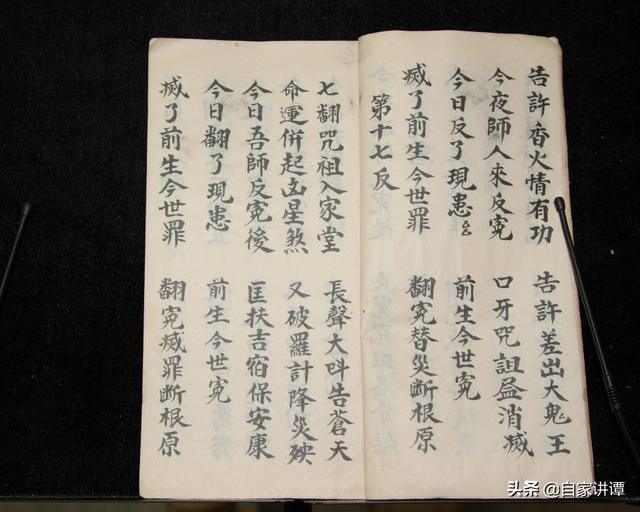 告許香火情有功 告許差出大鬼王
今夜師人來反寃 口牙咒詛盡消滅
今日反了現患 前生今世寃
滅了前生今世罪 翻寃替災断根原
第十七反
七翻咒祖入家堂 長聲大呌告蒼天
命運併起凶星煞 又破羅計降災殃
今日吾師反寃後 匡扶吉宿保安康
今日翻了現患 前生今世寃
滅了前生今世罪 翻寃滅罪断根原
头条 @自家讲谭